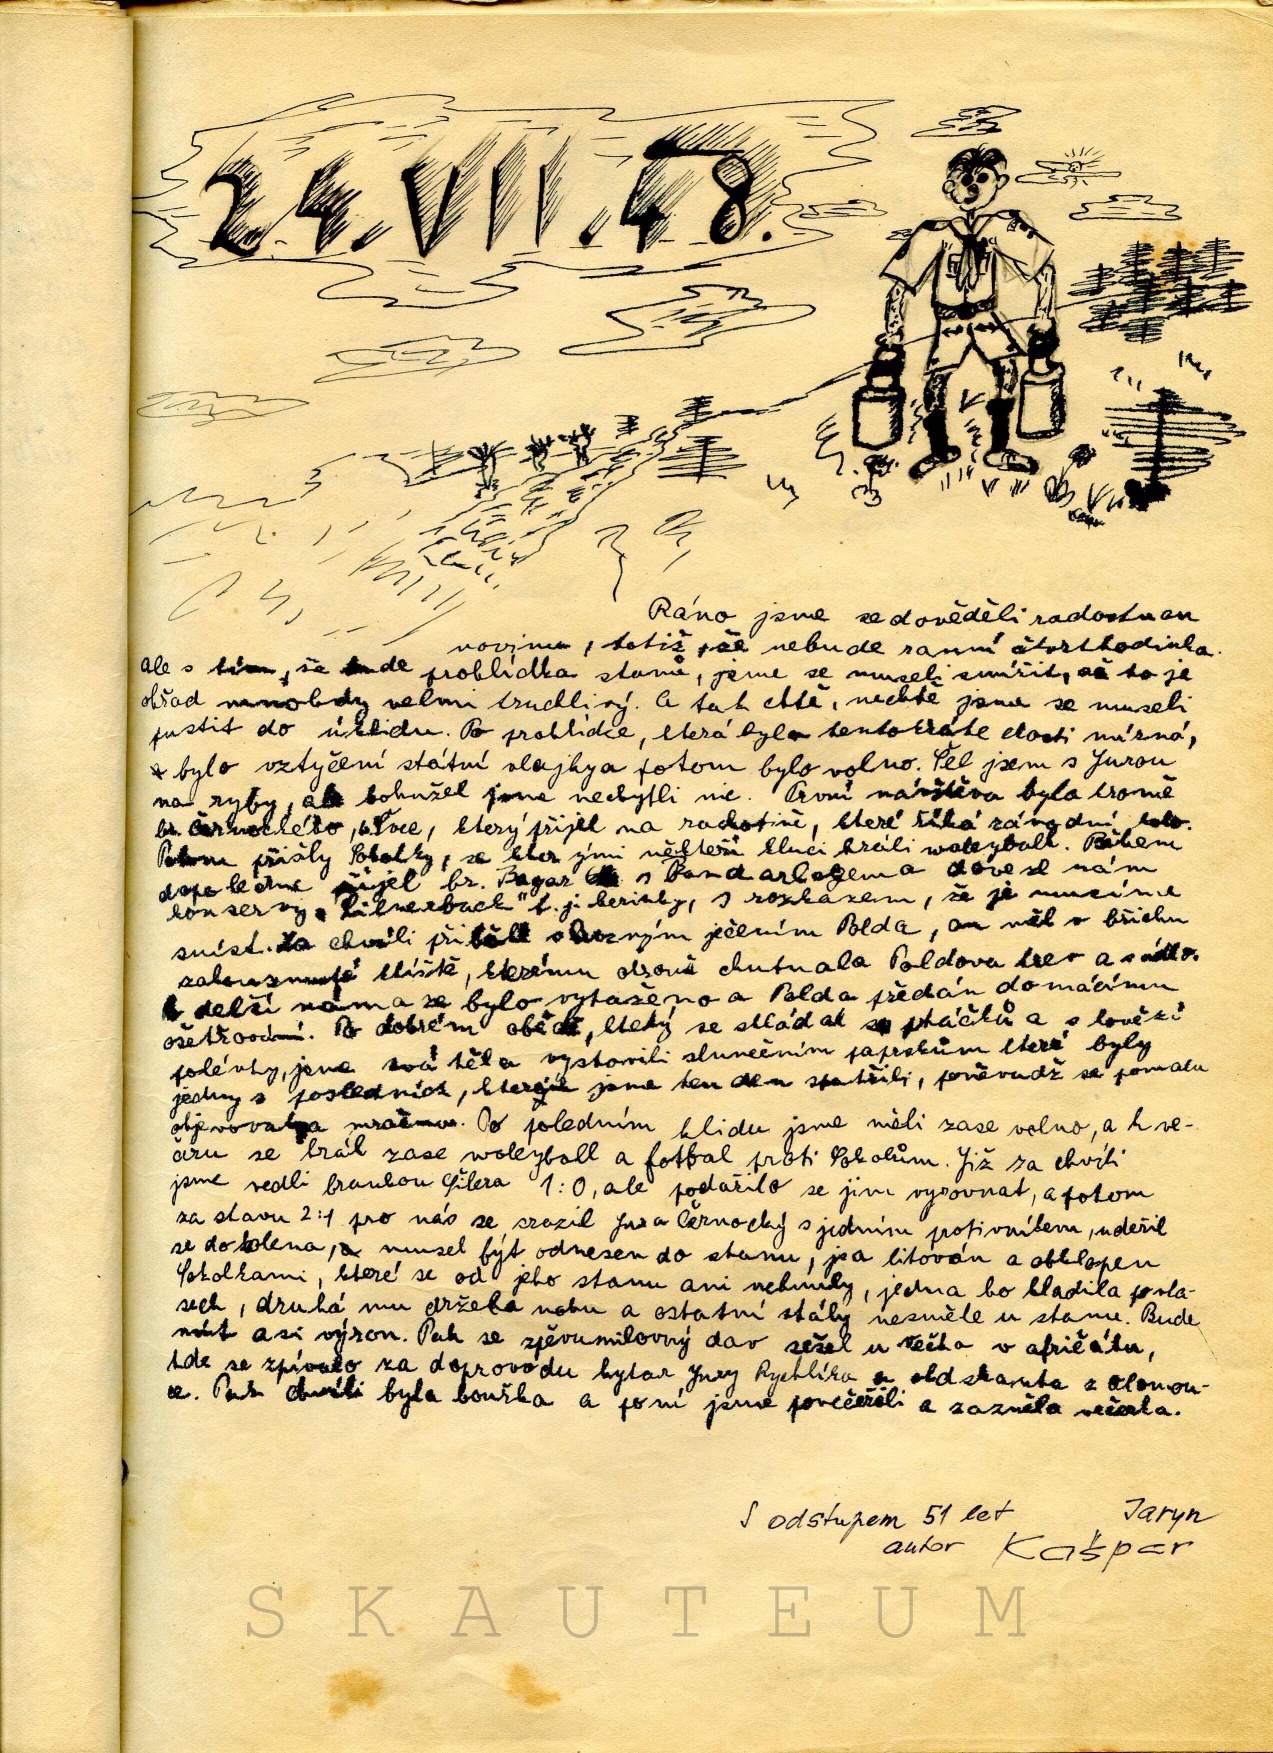 24.VII.48.
Ráno jsme se dověděli radostnou
novinu, totiž, že nebude ranní čtvrthodinka.
ale s tím, že bude prohlídka stanů, jsme se museli smířit, až to je
obřad mnohdy velmi truchlivý. A tak chtě, nechtě jsme se museli
pustit do úklidu. Po prohlídce, která byla tentokráte dosti mírná,
bylo vztyčení státní vlajky a potom bylo volno. Šel jsem s Jurou
na ryby, ale bohužel jsme nechytli nic. První návštěva byla kromě
br. Černockého, který přijel na rachotině, které říká závodní kolo.
Potom přišly Sokolky, se kterými někteří kluci hráli woleyball. Během
dopoledne přijel br. Bagar s Bandarlogem a dovezl nám
konservy t. j. keriky, s rozkazem, že je musíme
sníst. Za chvíli přiběhl s hrozným ječením Polda, an měl v břichu
zakousnuté klíště, kterému chutnala Poldova krev a sádlo.
K delší náma ze bylo vytaženo a Polda předán domácímu
ošetřování. Po dobrém obědě, který se skládal z ptáčků a hovězí
polévky, jsme svá těla vystavili slunečním paprskům které byly
jedny z posledních, které jsme ten den spatřili, poněvadž se pomalu
objevovala mračna. Po poledním klidu jsme měli zase volno, a k ve-
čeru se hrál zase woleyball a fotbal proti Sokolům. Již za chvíli
jsme vedli brankou Šilera 1:0, ale podařilo se jim vyrovnat, a potom
za stavu 2:1 pro nás se srazil Jura Černocký s jedním protivníkem, udeřil
se do kolena, a musel být odnesen do stanu, jsa litován a obklopen
Sokolkami, které se od jeho stanu ani nehnuly, jedna ho hladila po vla-
sech, druhá mu držela nohu a ostatní stály nesměle u stanu. Bude
mít asi výron. Pak se zpěvumilovný dav sešel u Večka v afričáku,
kde se zpívalo za doprovodu kytar Jury Rychlíka a oldskauta z Olomou-
ce. Pak chvíli byla bouřka a po ní jsme povečeřeli a zazněla večerka.
S odstupem 51 let Jaryn
autor Kašpar
SKAUTEUM